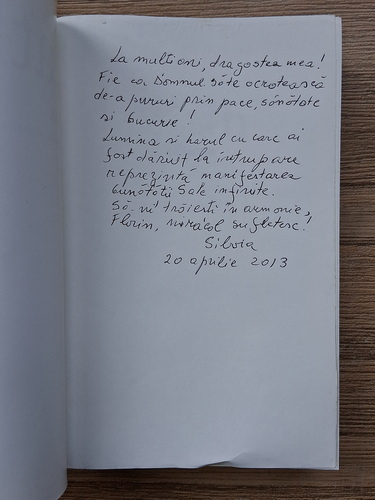 La mulți ani, dragostea mea!
Fie ca Domnul să te ocrotească
de-a pururi prin pace, sănătate
și bucurie!
Lumina și harul cu care ai
fost dăruit la întrupare
reprezintă manifestarea
bunătății Sale infinite.
Să-mi trăiești în armonie,
Florin, miracol sufletesc!
Silvia
20 aprilie 2013